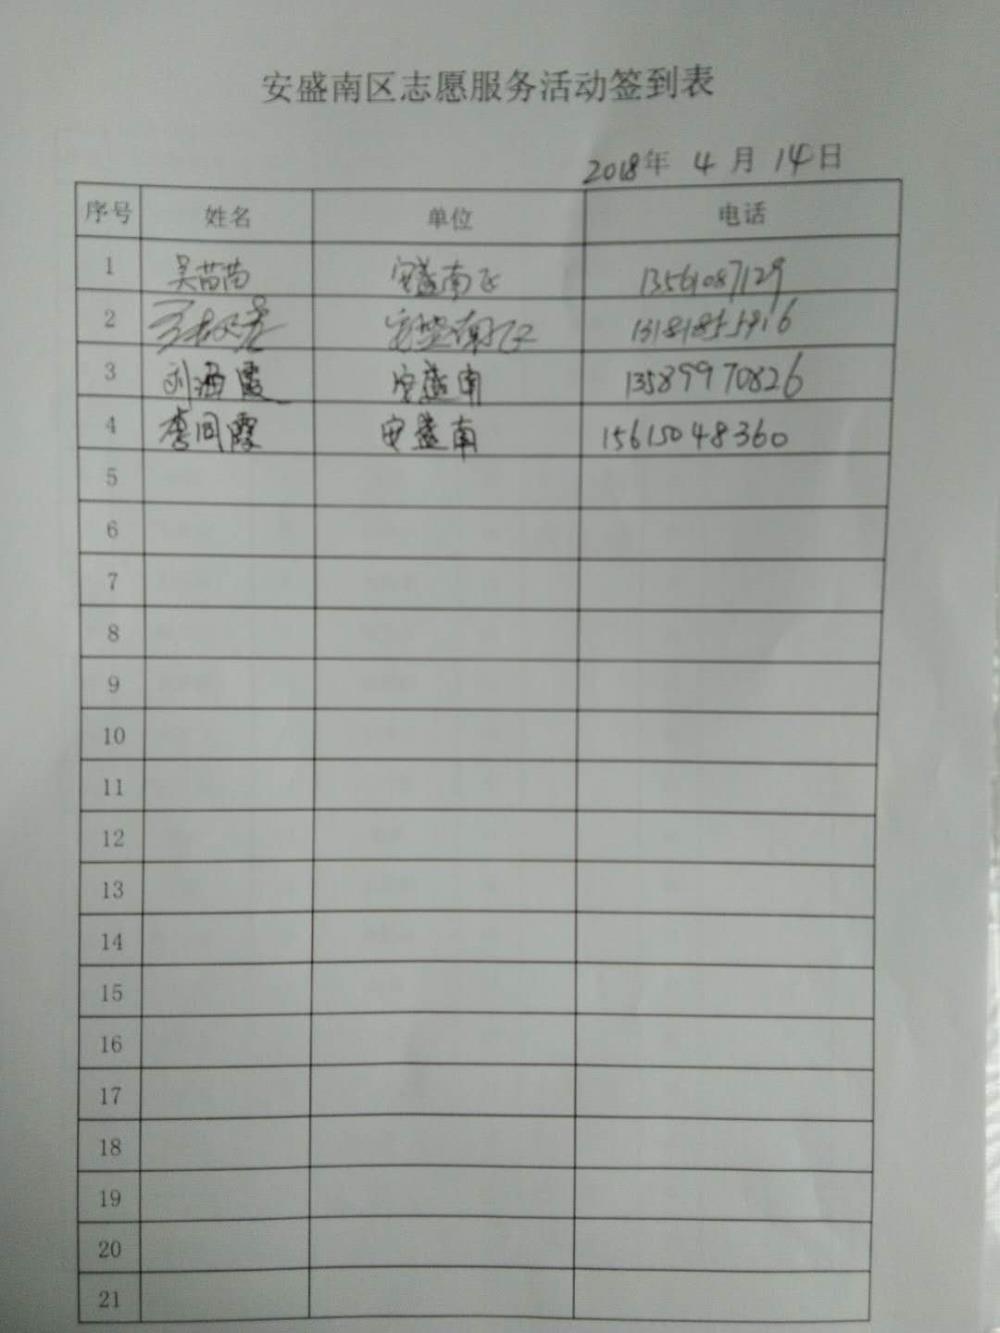 安盛南区志愿服务活动签到表
2018年 4 月 14日
序号 姓名 单位 电话
1 吴苗苗 安盛南区 13561087129
2 安盛南区 13181855916
3 刘海霞 安盛南 13589970826
4 李同霞 安盛南 15615048360
5
6
7
8
9
10
11
12
13
14
15
16
17
18
19
20
21